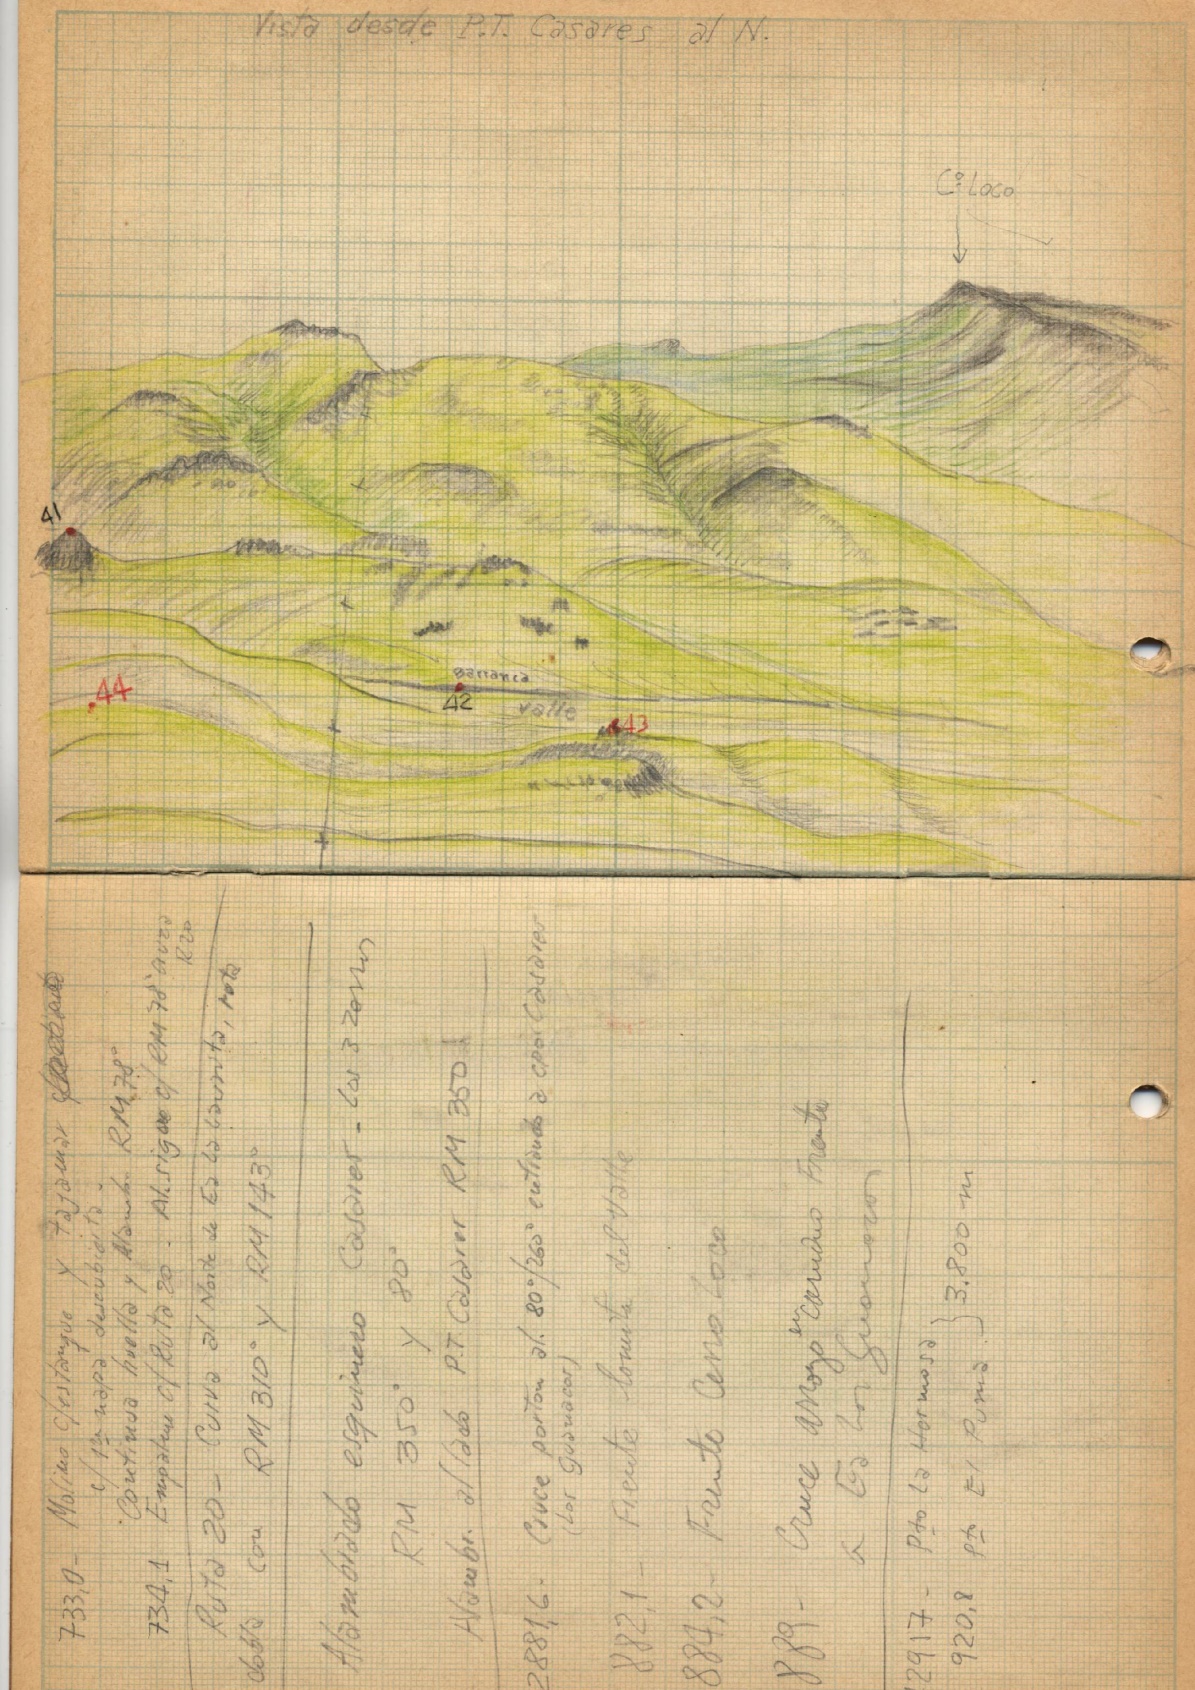 Vista desde P.T. Casares al N.
Cº Loco
41
barranca
42
valle
43
44
733,0 - Molino c/estanque y tajamar
c/ 1ra napa descubierta
Continua huella y Alamb. RM 78°
734,1 Empalme c/Ruta 20 - Al. sigue c/ RM 78°
Ruta 20 - Curva al Norte de Ea La Laurita, ruta
dobla con RM 310° y RM 143°
Alambrado esquinero Casares - Los 3 Zorros
RM 350° y 80°
Alambr. al lado P.T. Casares RM 350
2881,6 - Cruce portón al. 80°/260° entrando a cpo. Casares
(Los Guanacos)
882,1 - Frente lomita del valle
884,2 - Frente Cerro Loco
889 - Cruce arroyo en camino frente
a Ea Los Guanacos
2917 - Pto La Hormosa
920,8 Pto El Puma } 3.800 m